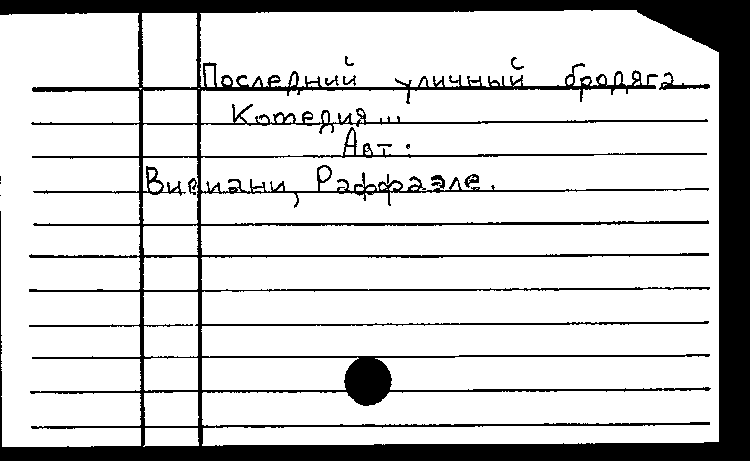 Последний уличный бродяга.
Комедия...
Авт:
Вивиани, Раффаэле.